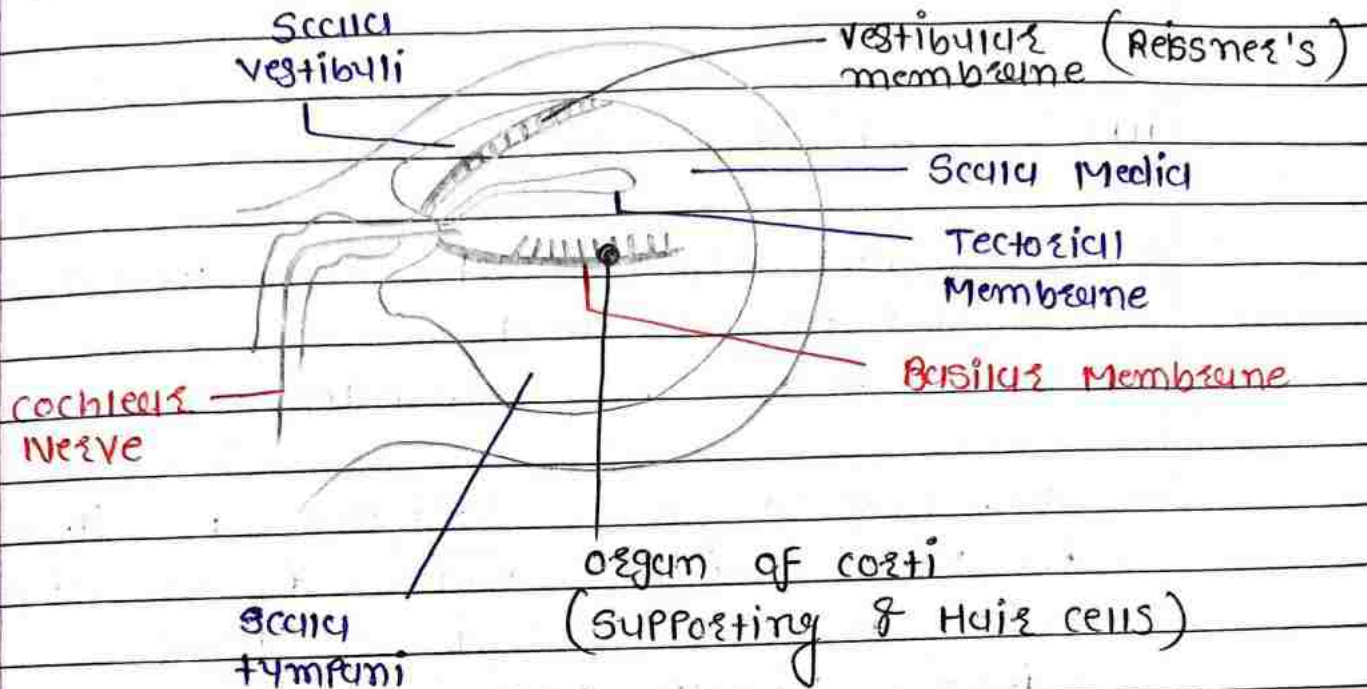 Scala
vestibuli
vestibular (Reissner's)
membrane
Scala Media
Tectorial
Membrane
Basilar Membrane
cochlear
Nerve
organ of corti
(supporting & Hair cells)
scala
tympani